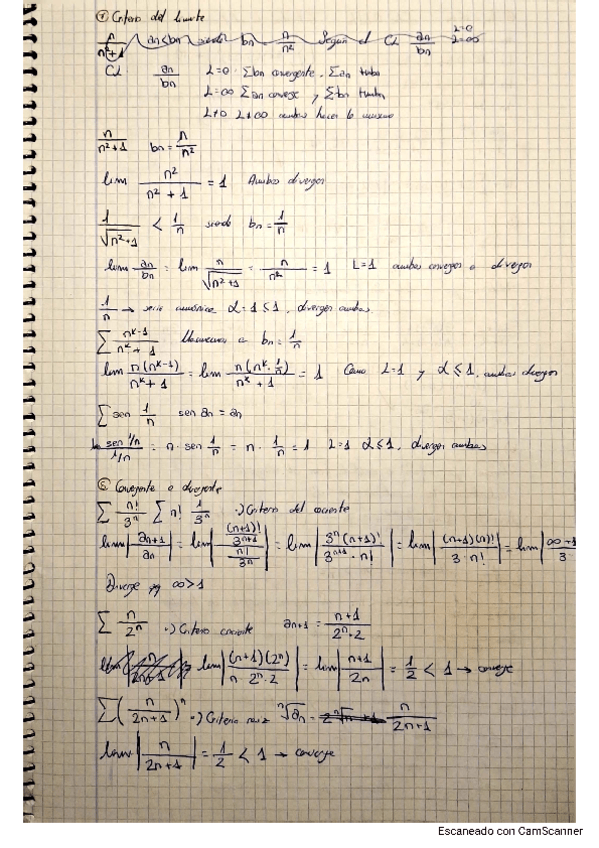 ⑦ Criterio del límite
n/(n²+1) an<bn siendo bn = n/n² Según el CL an/bn L=0 L=∞
CL an/bn L=0 · Σbn convergente, Σan
L=∞ Σan converge y Σbn
L≠0 L≠∞ ambas hacen lo mismo
n/(n²+1) bn = n/n²
lim n²/(n²+1) = 1 Ambas divergen
1/√(n²+1) < 1/n siendo bn = 1/n
lim an/bn = lim n/√(n²+1) = n/n² = 1 L=1 ambas convergen o divergen
1/n → serie armónica α=1≤1, divergen ambas.
Σ n^(k-1)/(n^k+1) llamamos a bn = 1/n
lim n(n^(k-1))/(n^k+1) = lim n(n^k·1/n)/(n^k+1) = 1 Como L=1 y α≤1, ambas divergen
Σ sen 1/n sen an = an
lim (sen 1/n)/(1/n) = n · sen 1/n = n · 1/n = 1 L=1 α≤1, divergen ambas
⑧ Convergente o divergente
Σ n!/3ⁿ Σ n! 1/3ⁿ ·) Criterio del cociente
lim |an+1/an| = lim |((n+1)!/3ⁿ⁺¹)/(n!/3ⁿ)| = lim |3ⁿ(n+1)!/(3ⁿ⁺¹·n!)| = lim |(n+1)(n)!/(3·n!)| = lim |∞+1/3
Diverge pq ∞>1
Σ n/2ⁿ ·) Criterio cociente an+1 = (n+1)/(2ⁿ·2)
lim |(n+1)(2ⁿ)/(n·2ⁿ·2)| = lim |(n+1)/2n| = 1/2 < 1 → converge
Σ (n/(2n+1))ⁿ ·) Criterio raíz ⁿ√an = n/(2n+1)
lim |n/(2n+1)| = 1/2 < 1 → converge
Escaneado con CamScanner